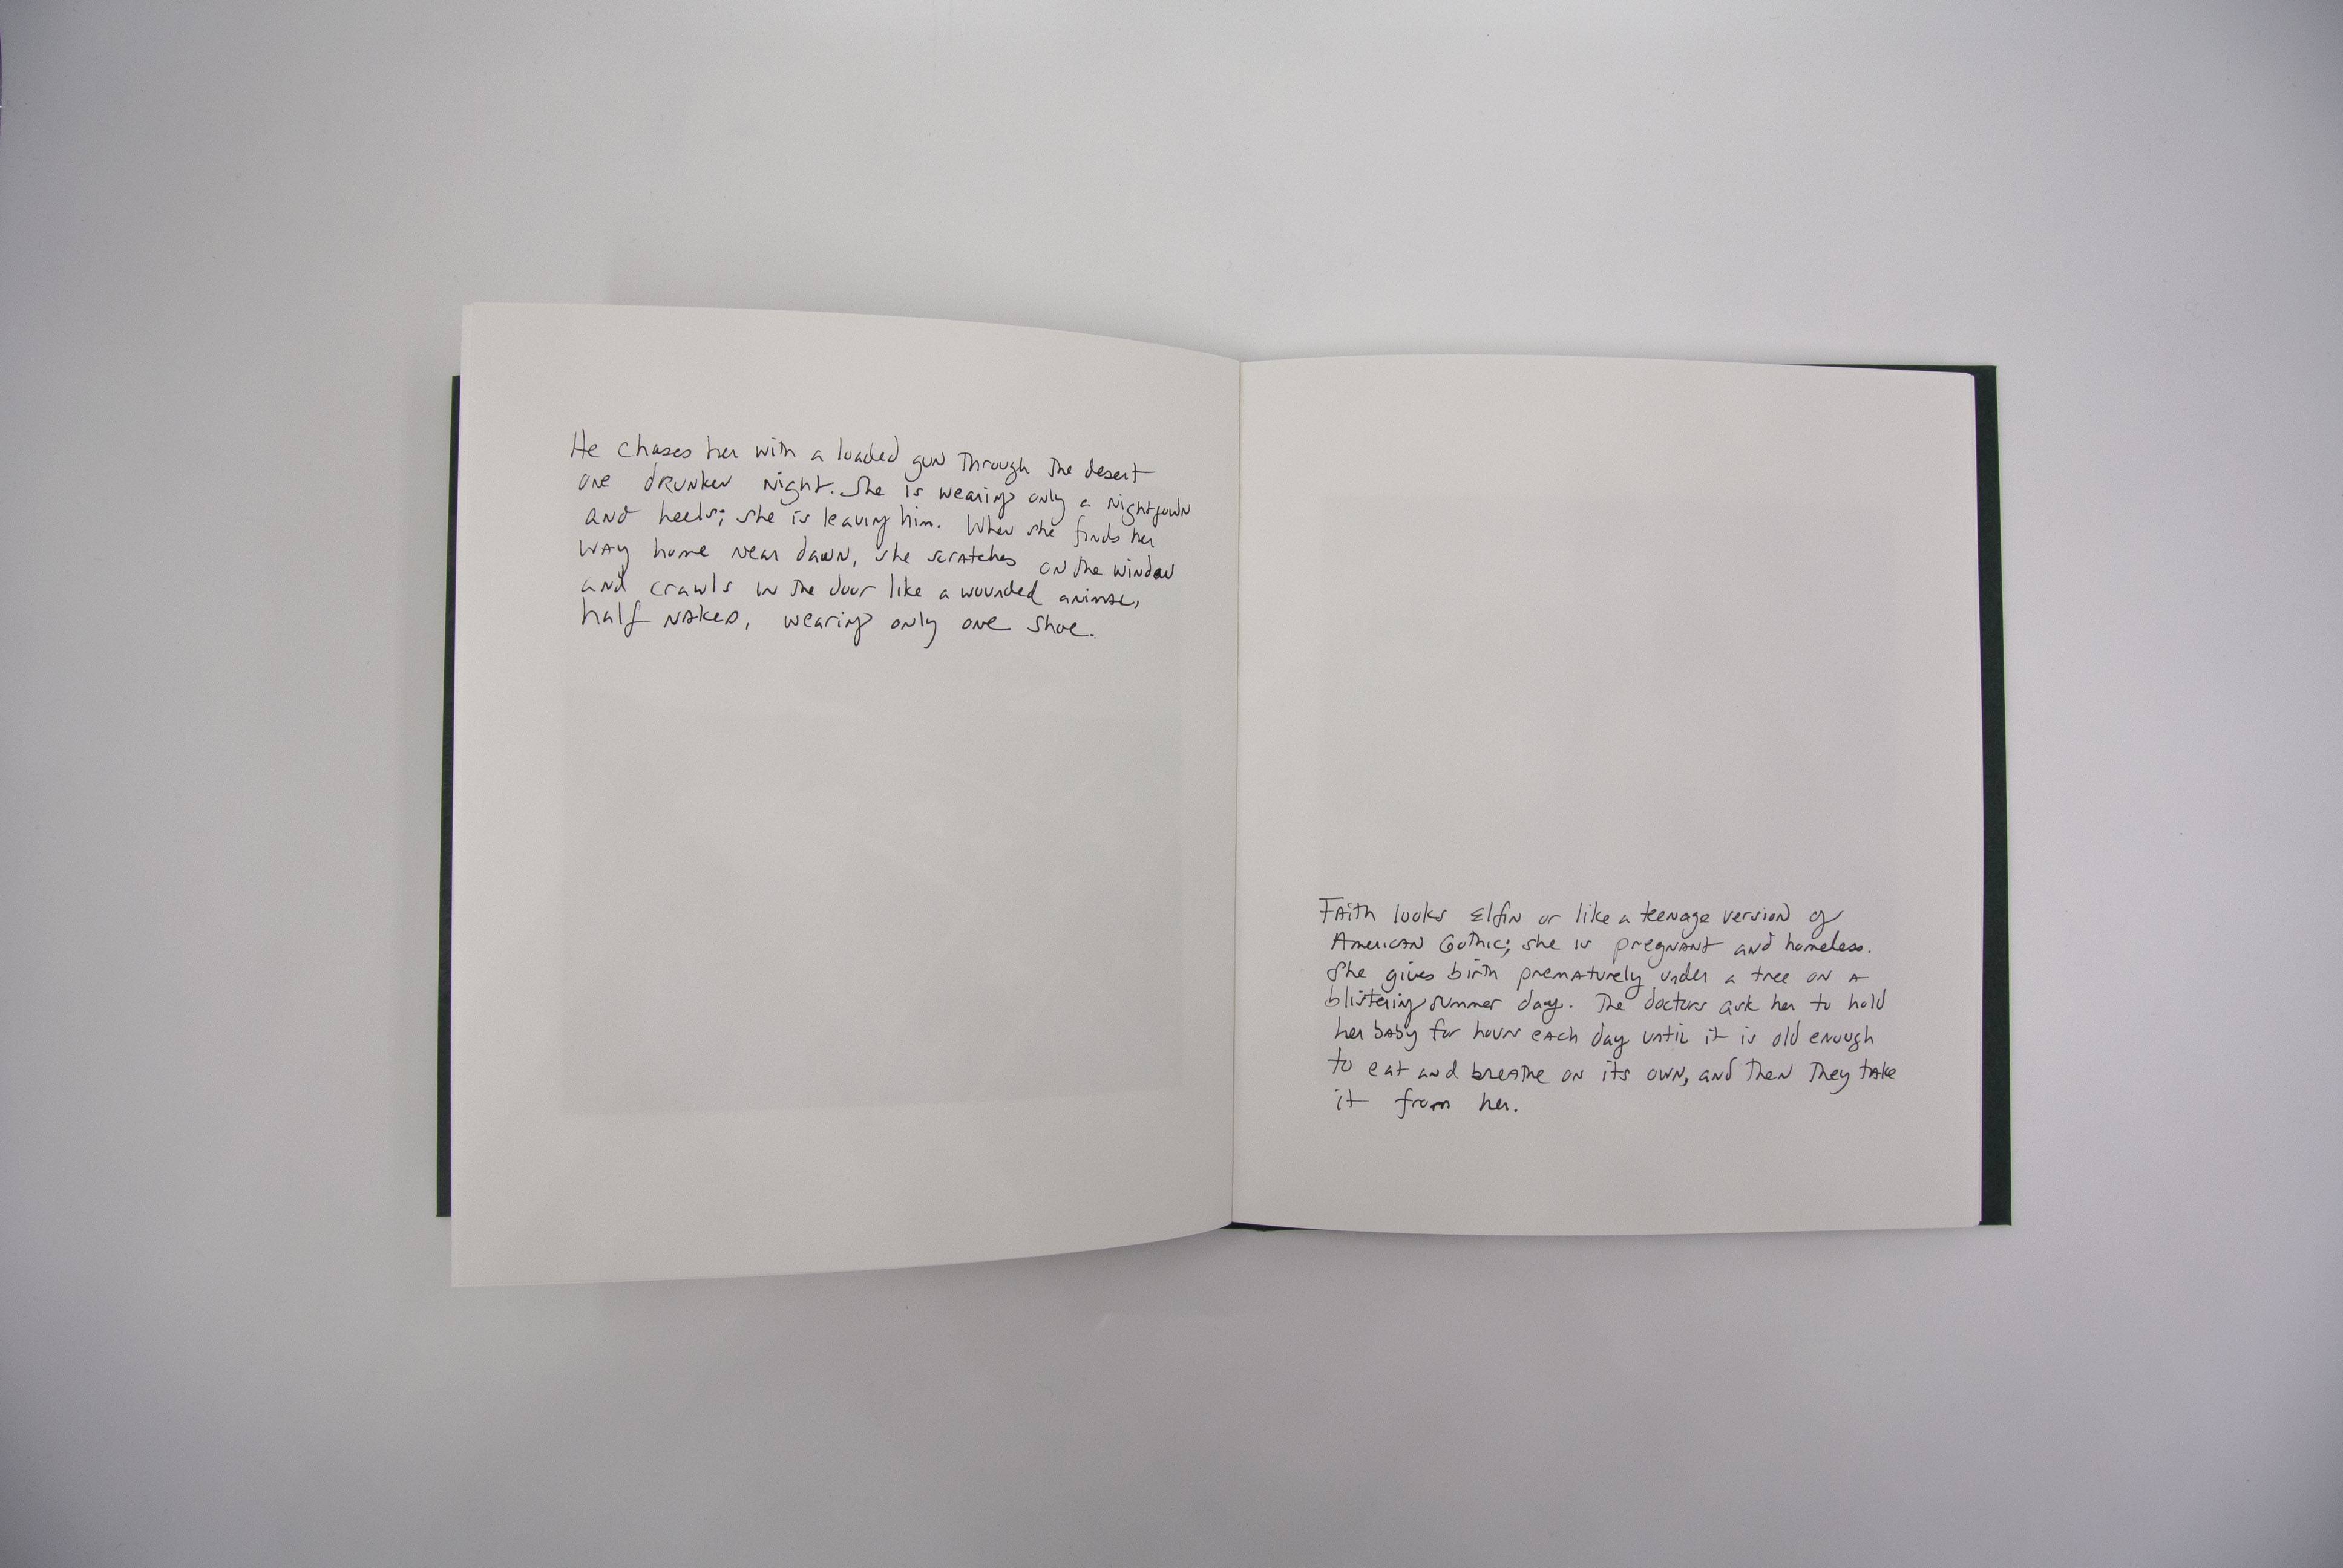 He chases her with a loaded gun through the desert
one drunken night. She is wearing only a nightgown
and heels; she is leaving him. When she finds her
way home near dawn, she scratches on the window
and crawls in the door like a wounded animal,
half naked, wearing only one shoe.
Faith looks elfin or like a teenage version of
American Gothic; she is pregnant and homeless.
She gives birth prematurely under a tree on a
blistering summer day. The doctors ask her to hold
her baby for hours each day until it is old enough
to eat and breathe on its own, and then they take
it from her.